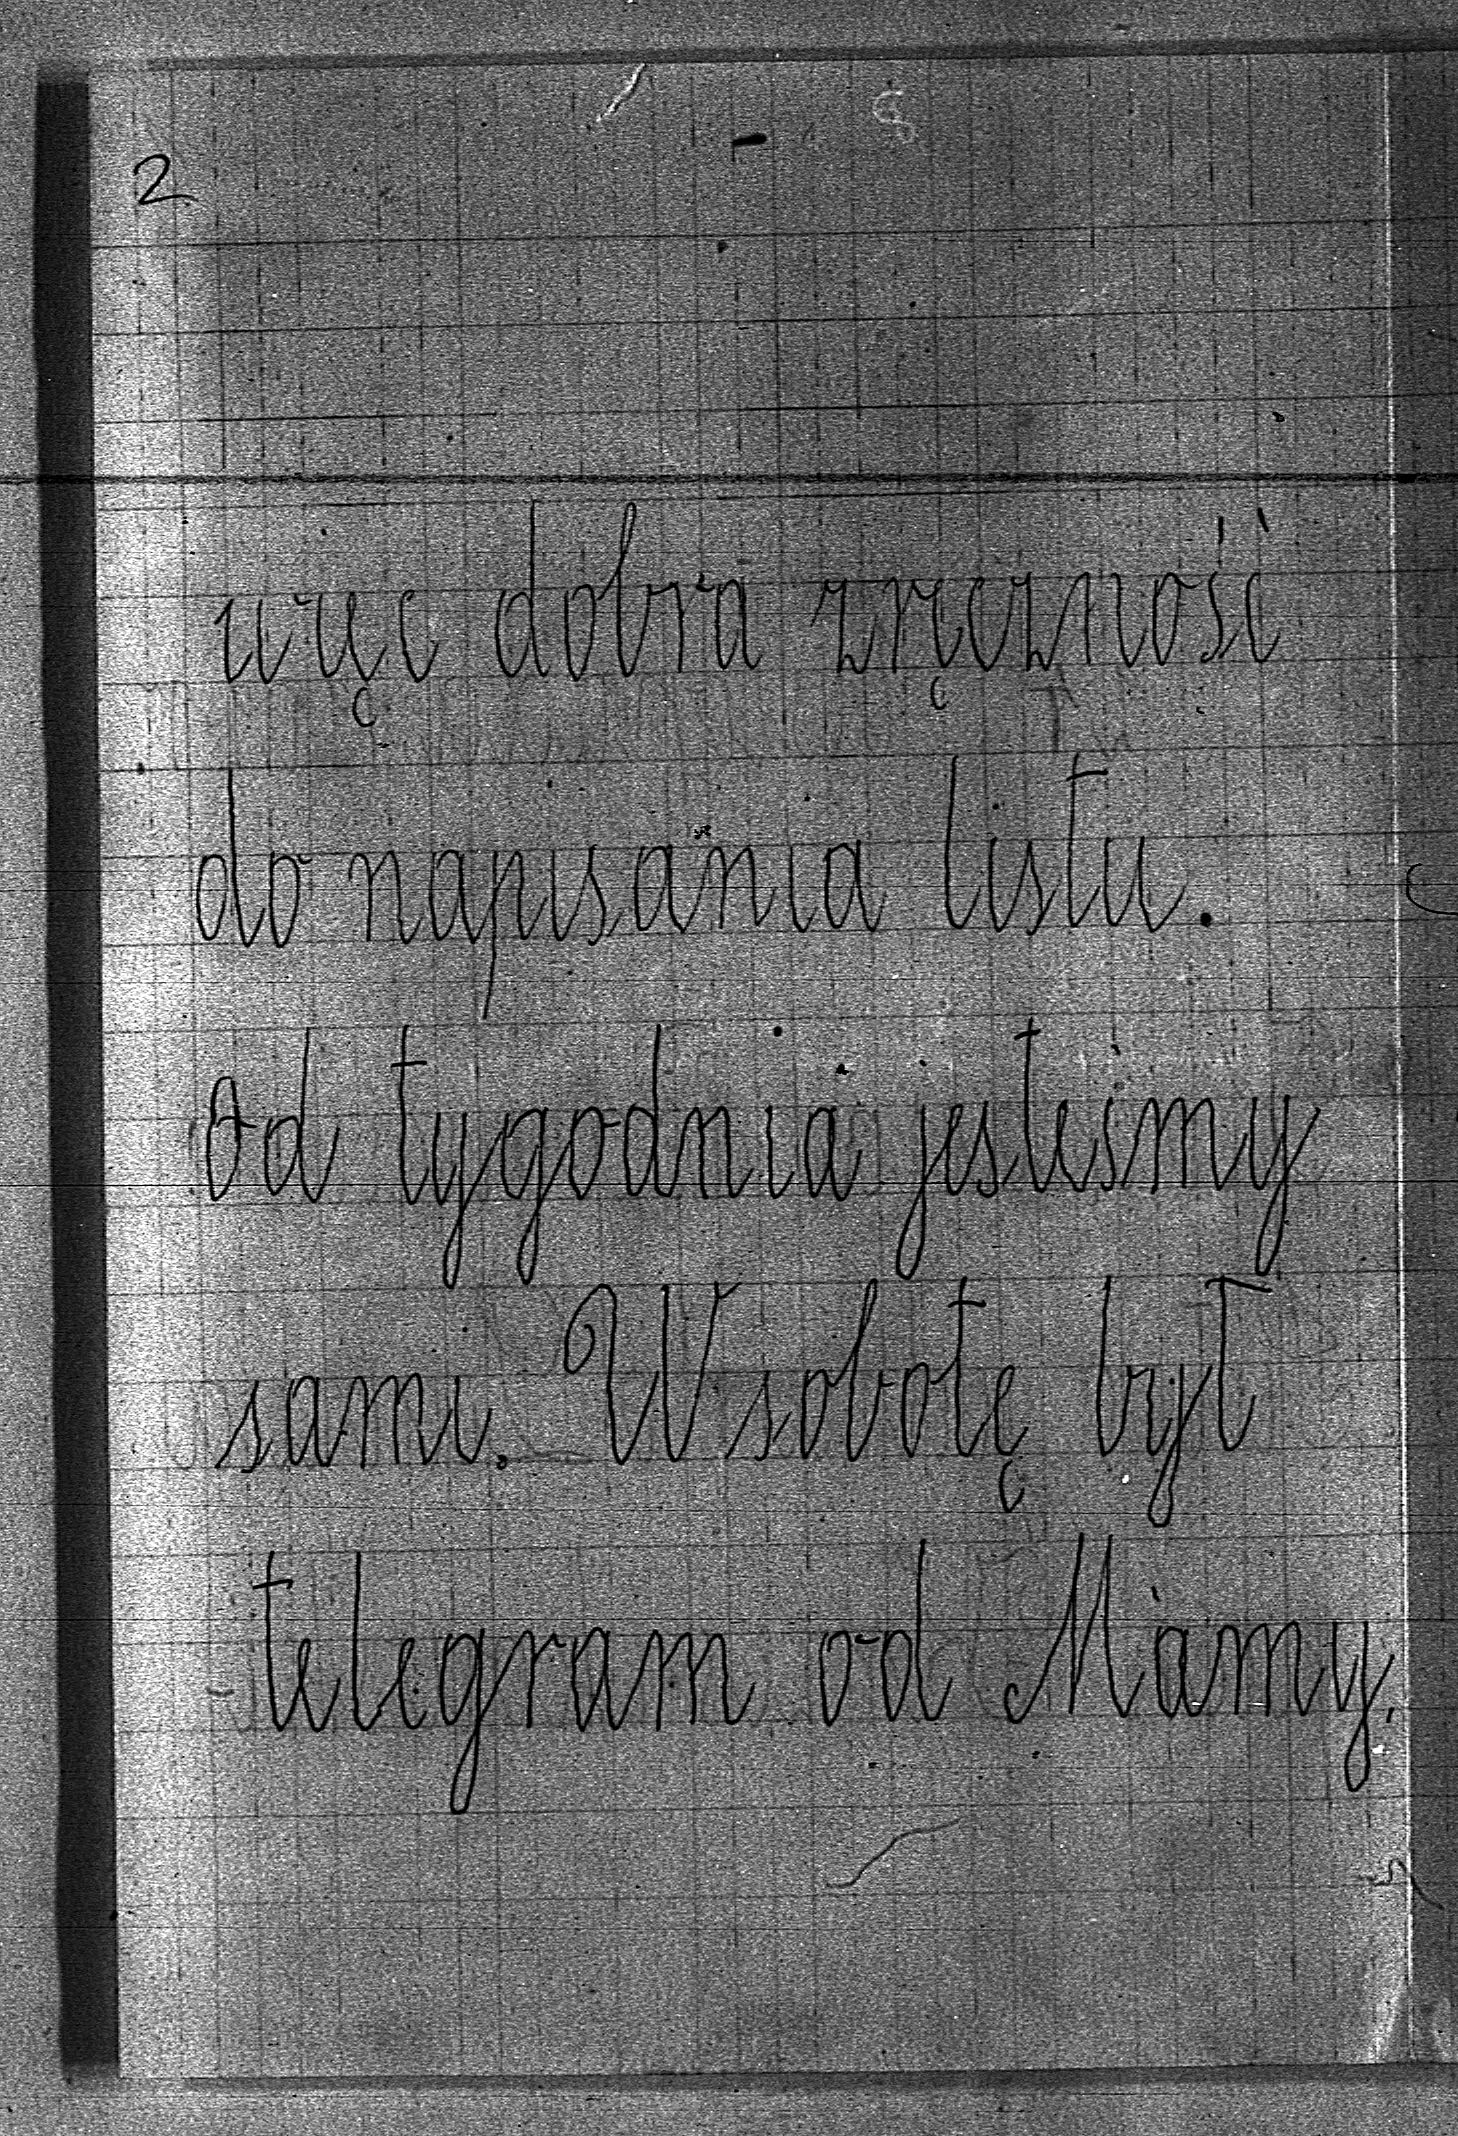 2
więc dobra zręczność
do napisania listu.
Od tygodnia jesteśmy
sami. W sobotę był
telegram od Mamy.